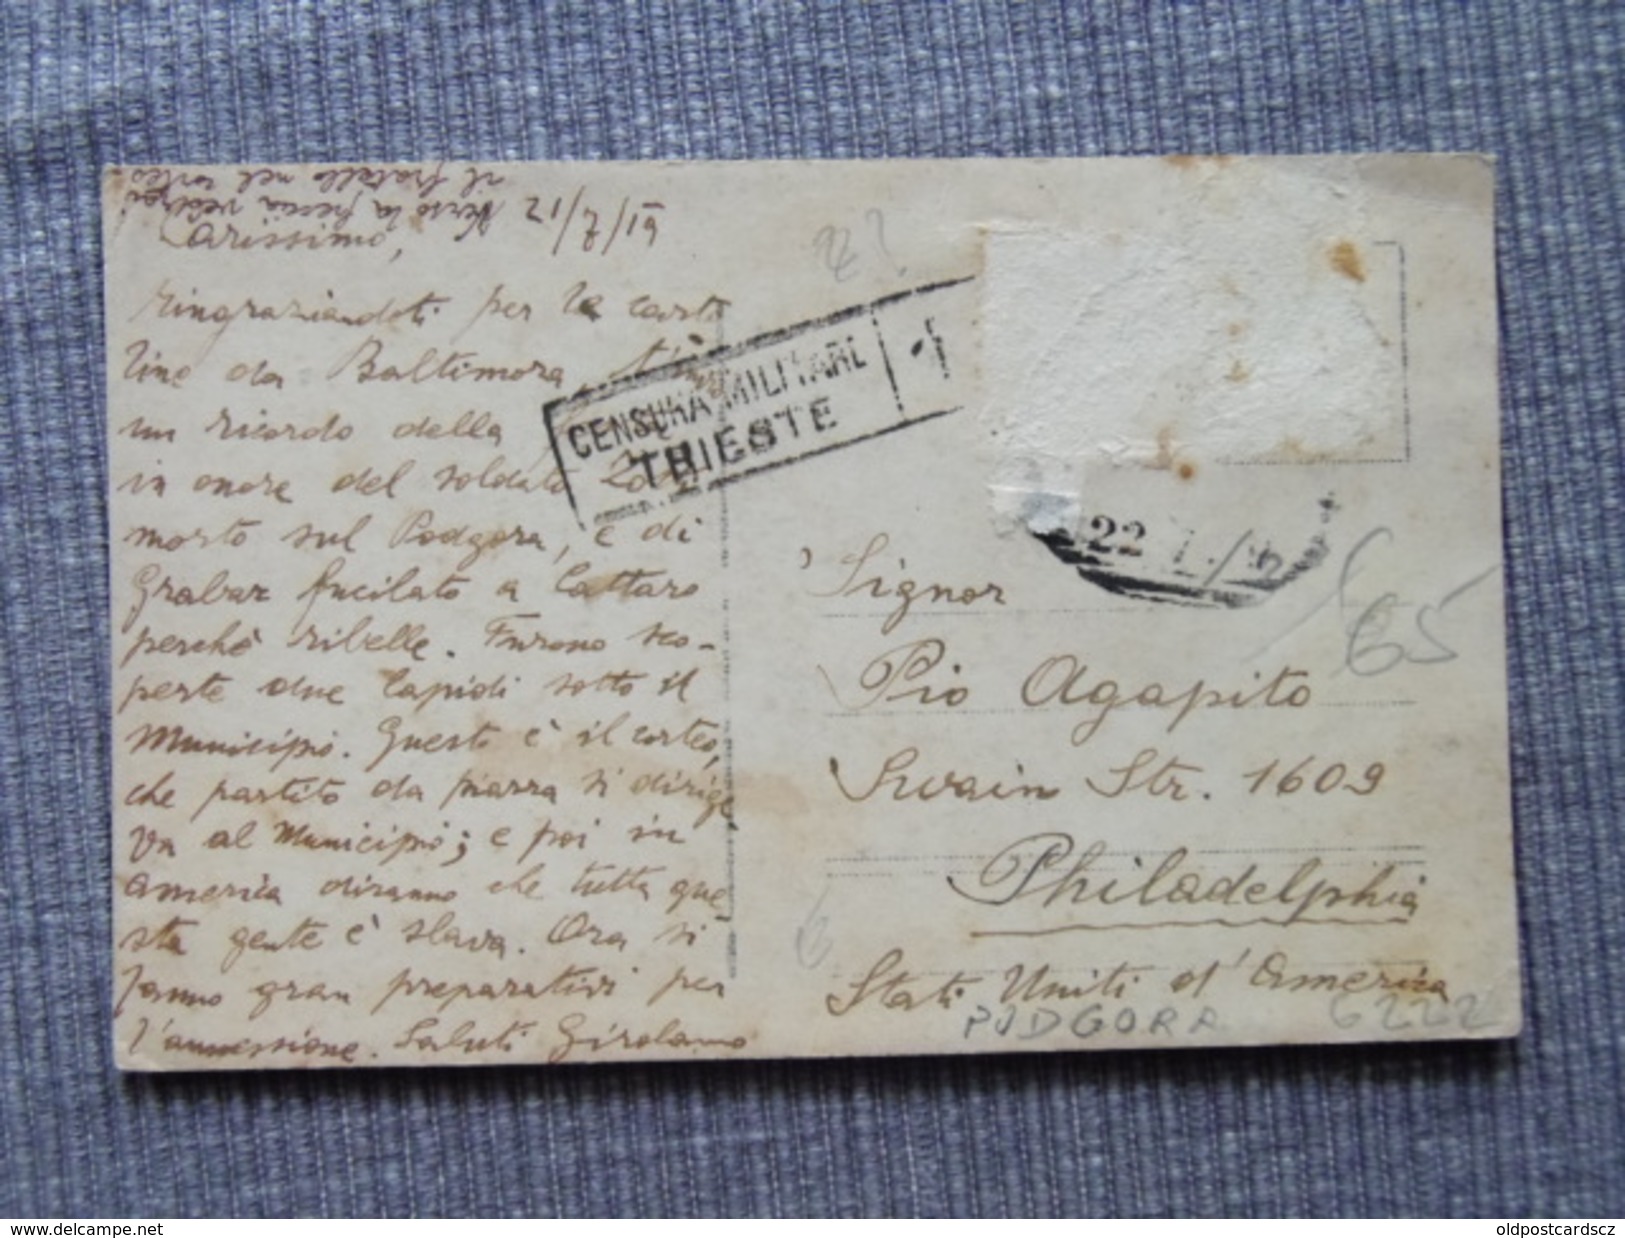 12/7/19
Verso la freccia vedrai
il fratello nel corteo
Carissimo,
ringraziandoti per le carto
line da Baltimora,
un ricordo della
in onore del soldato
morto sul Podgora, e di
Grabar fucilato a Cattaro
perchè ribelle. Furono sco-
perte due lapidi sotto il
Municipio. Questo è il corteo,
che partito da piazza si dirige
va al Municipio; e poi in
America diranno che tutta que
sta gente è slava. Ora si
fanno gran preparativi per
l'annessione. Saluti Girolamo
CENSURA MILITARE
TRIESTE
22
Signor
Pio Agapito
Swain Str. 1609
Philadelphia
Stati Uniti d'America
PODGORA
65
6222
www.delcampe.net
oldpostcardscz